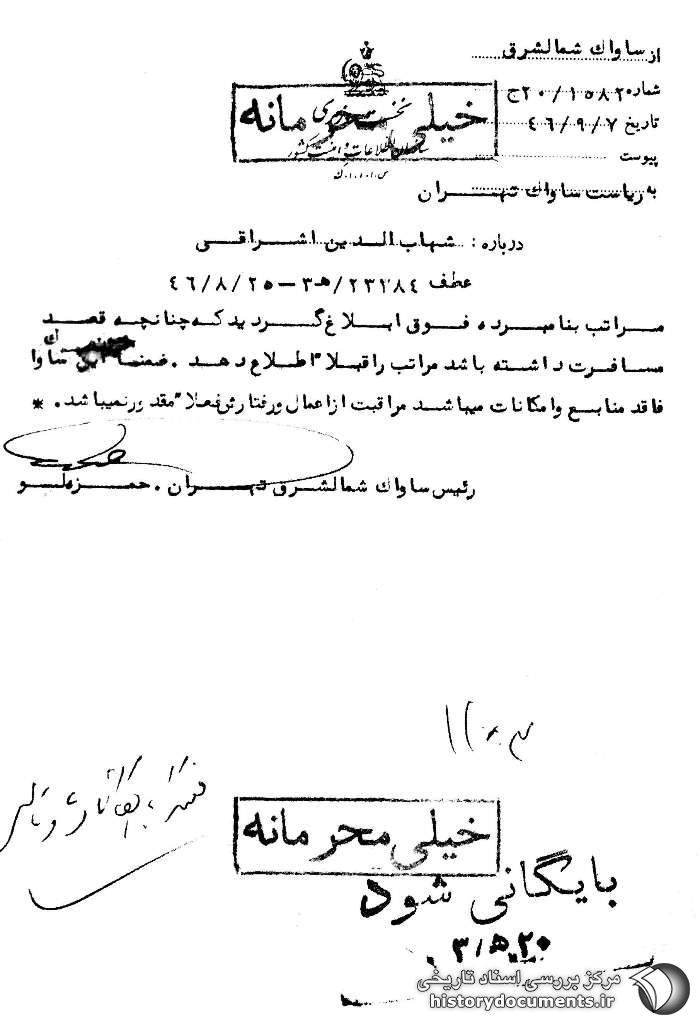 از ساواك شمالشرق
شماره ۲۰/۱۵۸۲ج
تاریخ ۴۶/۹/۷
پیوست
نخست وزیری
خیلی محرمانه
سازمان اطلاعات و امنیت کشور
به ریاست ساواك تهران
درباره : شهاب الدین اشراقی
عطف ۲۳۲۸۴/ﻫ۳ – ۴۶/۸/۲۵
مراتب بنامبرده فوق ابلاغ گردید که چنانچه قصد
مسافرت داشته باشد مراتب را قبلا" اطلاع دهد . ضمنا" این ساواك
فاقد منابع و امکانات میباشد مراقبت از اعمال و رفتارش فعلا" مقدور نمیباشد . *
رئیس ساواك شمالشرق تهران . حمزه لو
خیلی محرمانه
بایگانی شود
۲۰ ﻫ ۳
مرکز بررسی اسناد تاریخی
historydocuments.ir